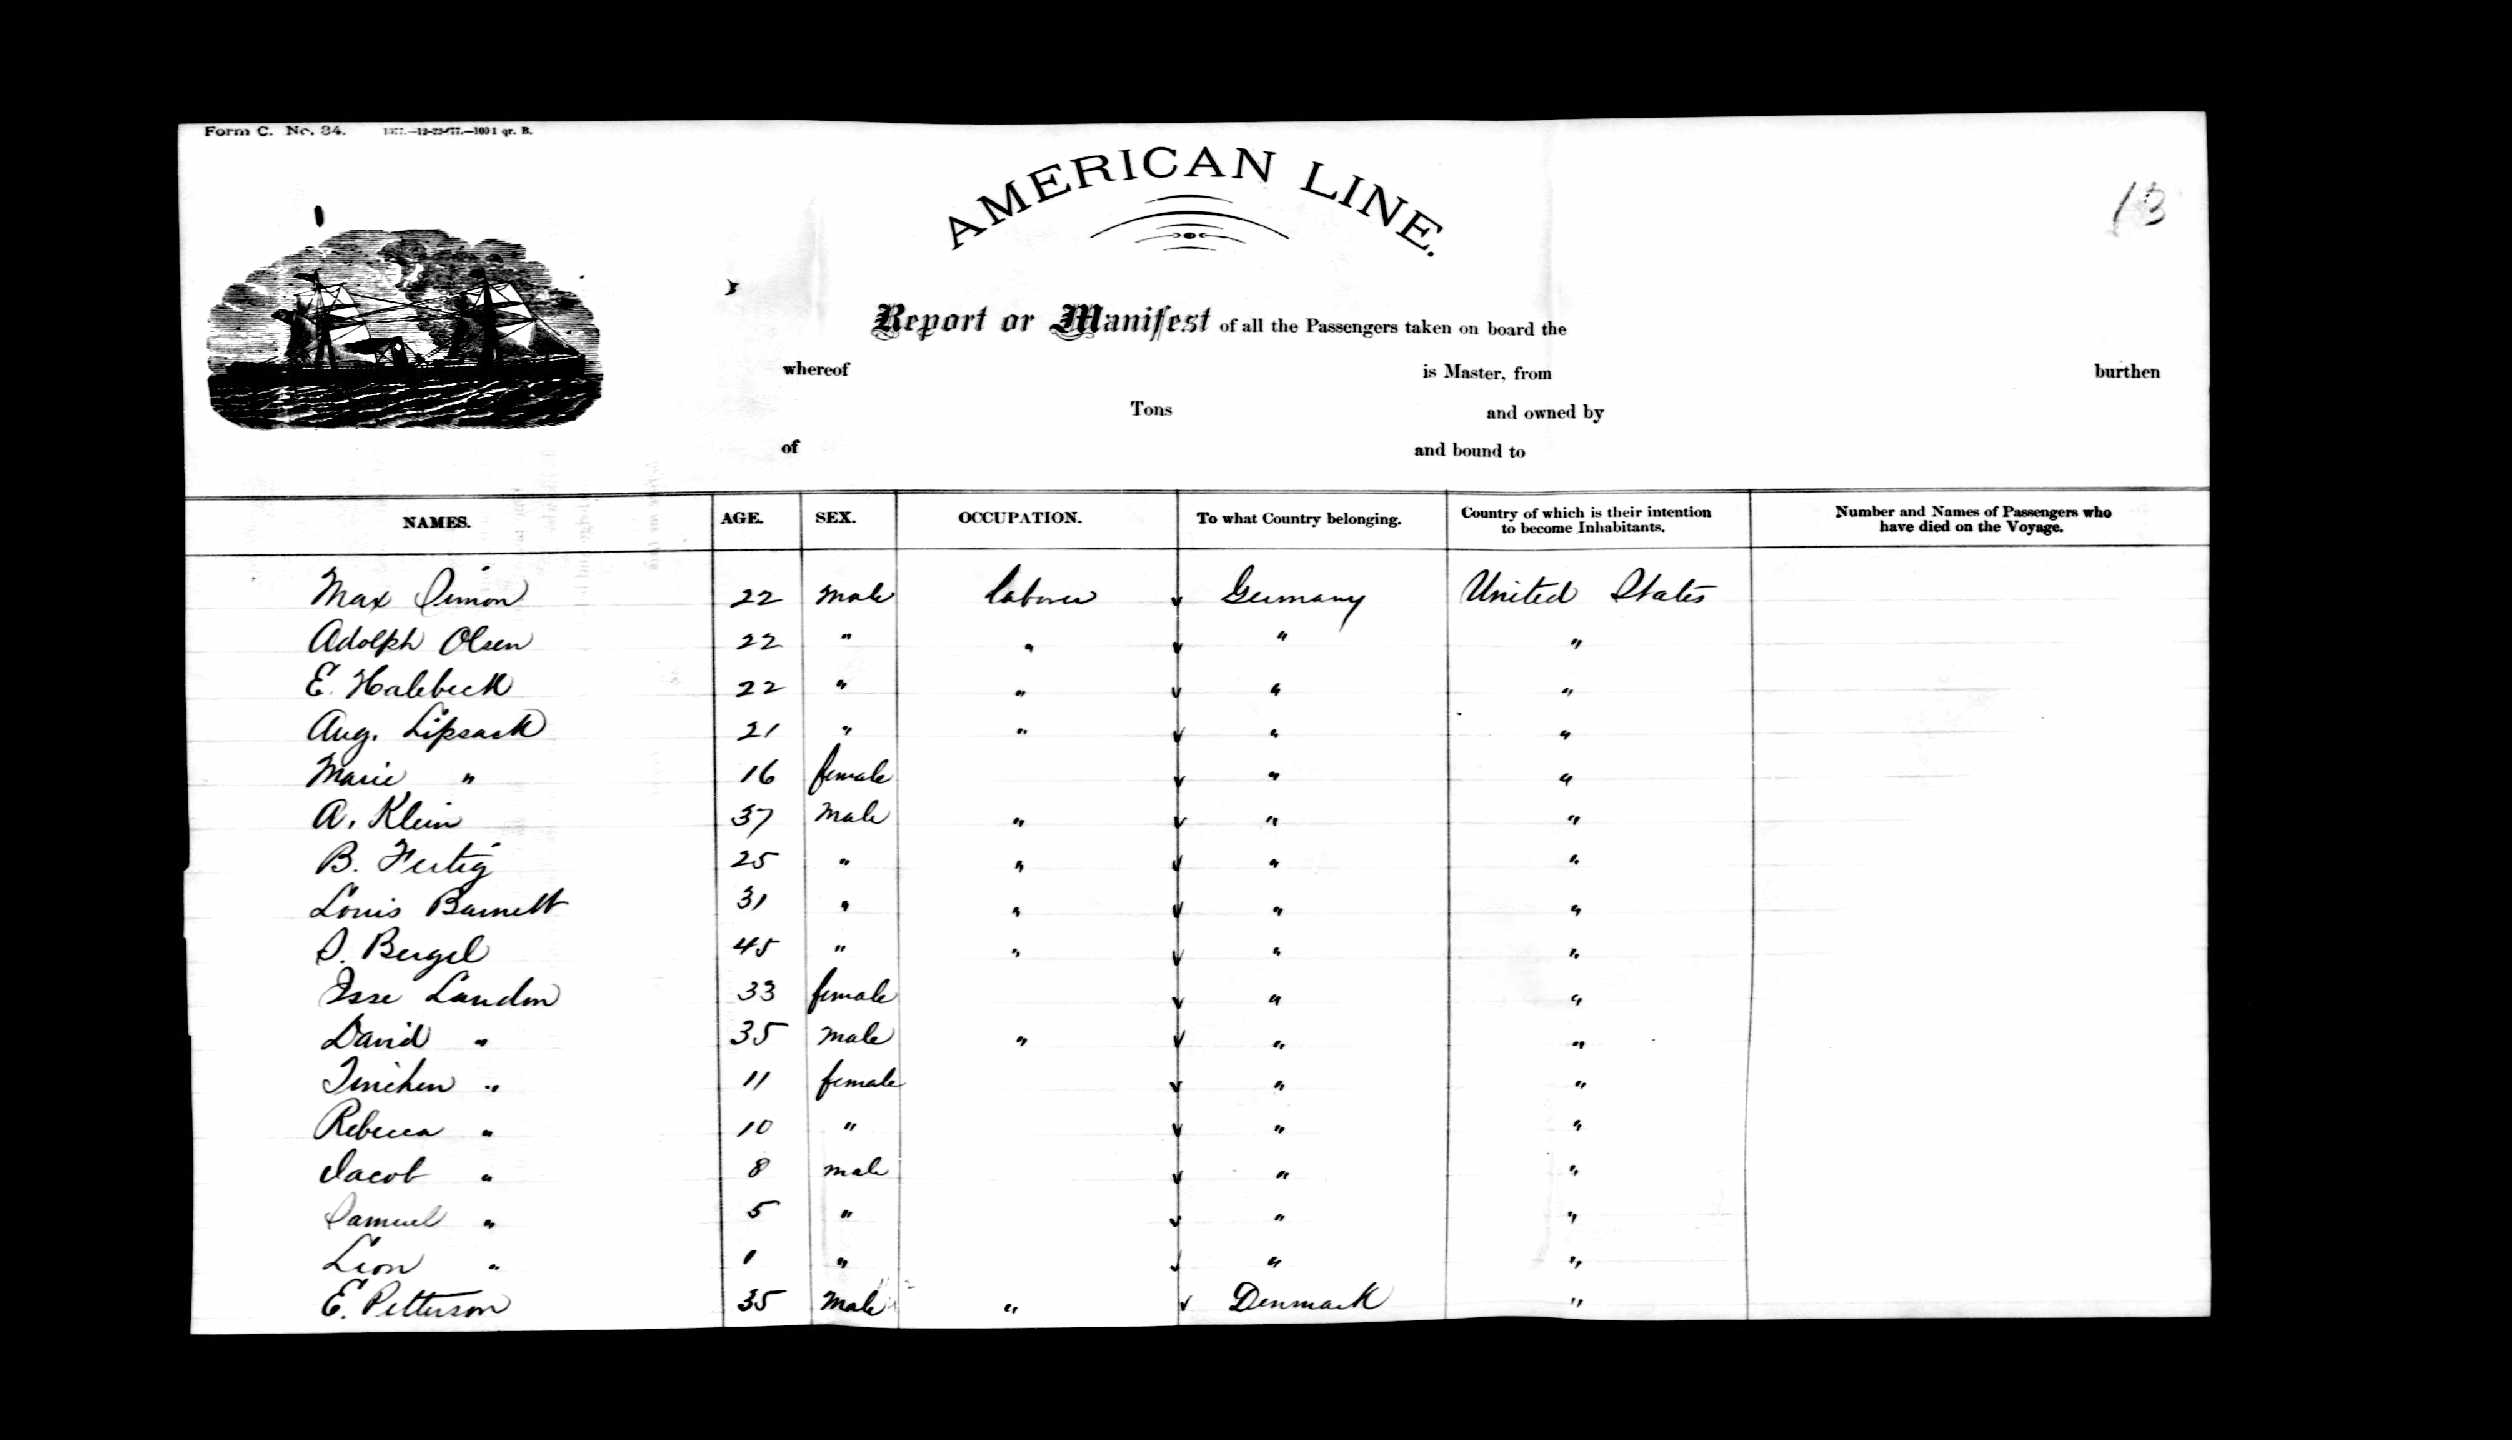 Form C. No. 34.
AMERICAN LINE.
13
Report or Manifest of all the Passengers taken on board the
whereof is Master, from burthen
Tons and owned by
of and bound to
NAMES. AGE. SEX. OCCUPATION. To what Country belonging. Country of which is their intention to become Inhabitants. Number and Names of Passengers who have died on the Voyage.
Max Simon 22 male laborer ✓ Germany United States
Adolph Olsen 22 " " ✓ " "
E. Halebeck 22 " " ✓ " "
Aug. Lipsack 21 " " ✓ " "
Marie " 16 female ✓ " "
A. Klein 37 male " ✓ " "
B. Fertig 25 " " ✓ " "
Louis Barnett 31 " " ✓ " "
S. Bergel 45 " " ✓ " "
Landon 33 female ✓ " "
David " 35 male " ✓ " "
" 11 female ✓ " "
Rebecca " 10 " ✓ " "
Jacob " 8 male ✓ " "
Samuel " 5 " ✓ " "
Leon " 1 " ✓ " "
E. Petterson 35 male " ✓ Denmark "